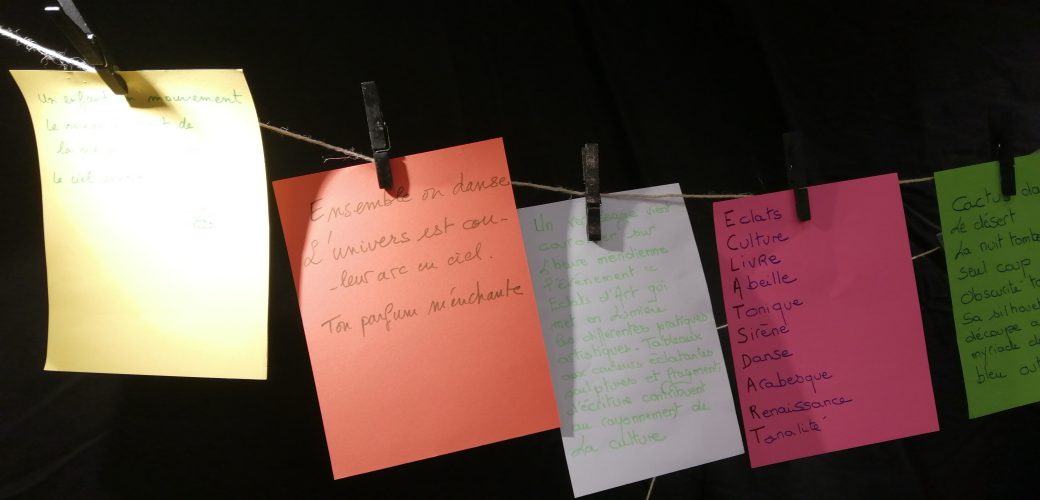 Un enfant en mouvement
Le
la
Le ciel
Ensemble on danse
L'univers est cou-
-leur arc en ciel.
Ton parfum m'enchante
Un
sur
L'heure méridienne
l'évènement
Eclats d'Art qui
met en Lumière
les différentes pratiques
artistiques. Tableaux
aux couleurs éclatantes
sculptures et fragments
d'écriture contribuent
au rayonnement de
La culture
Eclats
Culture
LivRe
Abeille
Tonique
Sirène
Danse
Arabesque
Renaissance
Tonalité
Cactus da
Le désert
La nuit tombe
seul coup
Obscurité to
Sa silhoue
découpe a
myriade de
bleu out